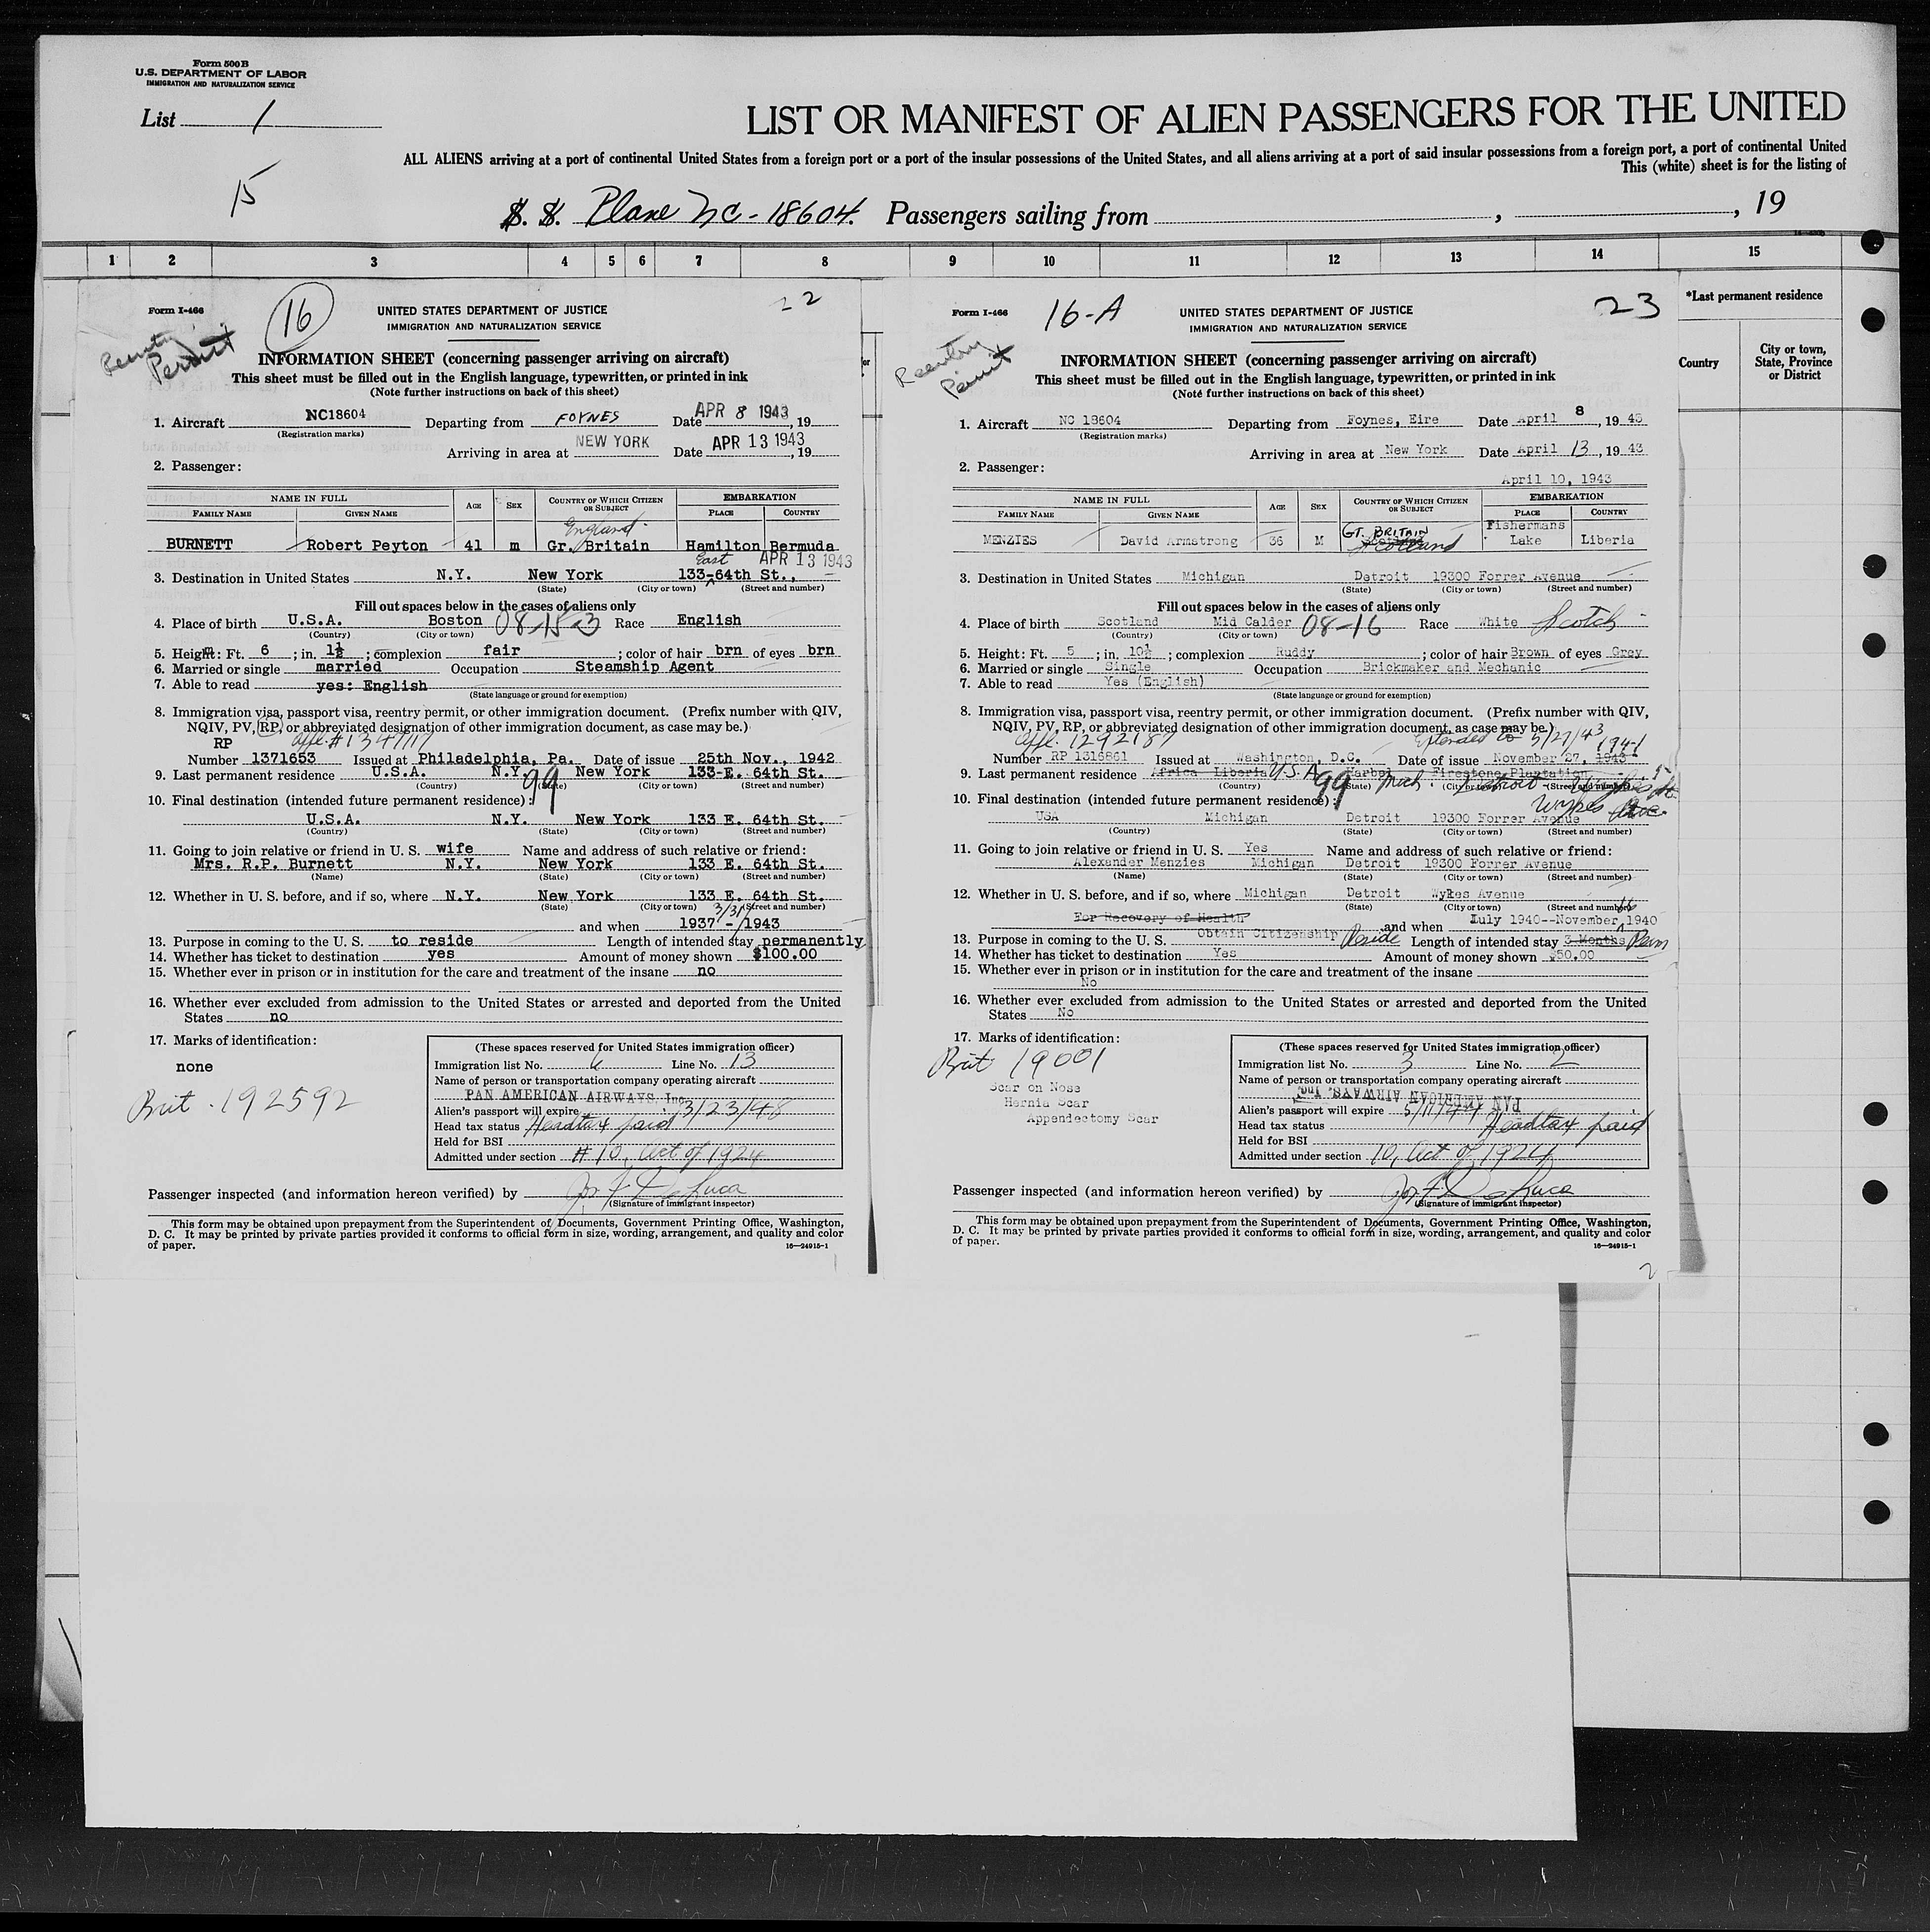 Form 500 B
U.S. DEPARTMENT OF LABOR
IMMIGRATION AND NATURALIZATION SERVICE
List 1
LIST OR MANIFEST OF ALIEN PASSENGERS FOR THE UNITED
ALL ALIENS arriving at a port of continental United States from a foreign port or a port of the insular possessions of the United States, and all aliens arriving at a port of said insular possessions from a foreign port, a port of continental United
This (white) sheet is for the listing of
15
S. S. Plane NC-18604. Passengers sailing from , , 19
1 2 3 4 5 6 7 8 9 10 11 12 13 14 15
*Last permanent residence
Country
City or town, State, Province or District
Form I-466
16
22
Reentry Permit
UNITED STATES DEPARTMENT OF JUSTICE
IMMIGRATION AND NATURALIZATION SERVICE
INFORMATION SHEET (concerning passenger arriving on aircraft)
This sheet must be filled out in the English language, typewritten, or printed in ink
(Note further instructions on back of this sheet)
1. Aircraft NC18604 Departing from FOYNES Date APR 8 1943, 19
(Registration marks)
Arriving in area at NEW YORK Date APR 13 1943, 19
2. Passenger:
NAME IN FULL AGE SEX COUNTRY OF WHICH CITIZEN OR SUBJECT EMBARKATION
FAMILY NAME GIVEN NAME PLACE COUNTRY
England
BURNETT Robert Peyton 41 m Gr. Britain Hamilton Bermuda
East APR 13 1943
3. Destination in United States N.Y. New York 133-64th St.,
(State) (City or town) (Street and number)
Fill out spaces below in the cases of aliens only
4. Place of birth U.S.A. Boston 08-15-3 Race English
(Country) (City or town)
5. Height: Ft. 6 ; in. 1½ ; complexion fair ; color of hair brn of eyes brn
6. Married or single married Occupation Steamship Agent
7. Able to read yes: English
(State language or ground for exemption)
8. Immigration visa, passport visa, reentry permit, or other immigration document. (Prefix number with QIV,
NQIV, PV, RP, or abbreviated designation of other immigration document, as case may be.)
RP
Number 1371653 Issued at Philadelphia, Pa. Date of issue 25th Nov., 1942
9. Last permanent residence U.S.A. N.Y. 99 New York 133-E. 64th St.
(Country) (State) (City or town) (Street and number)
10. Final destination (intended future permanent residence):
U.S.A. N.Y. New York 133 E. 64th St.
(Country) (State) (City or town) (Street and number)
11. Going to join relative or friend in U. S. wife Name and address of such relative or friend:
Mrs. R.P. Burnett N.Y. New York 133 E. 64th St.
(Name) (State) (City or town) (Street and number)
12. Whether in U. S. before, and if so, where N.Y. New York 133 E. 64th St.
(State) (City or town) (Street and number)
3/31/
and when 1937 - 1943
13. Purpose in coming to the U. S. to reside Length of intended stay permanently
14. Whether has ticket to destination yes Amount of money shown $100.00
15. Whether ever in prison or in institution for the care and treatment of the insane no
16. Whether ever excluded from admission to the United States or arrested and deported from the United
States no
17. Marks of identification:
none
Brit. 192592
(These spaces reserved for United States immigration officer)
Immigration list No. 6 Line No. 13
Name of person or transportation company operating aircraft
PAN AMERICAN AIRWAYS, Inc.
Alien's passport will expire 3/23/48
Head tax status Headtax paid
Held for BSI
Admitted under section # 10, Act of 1924
Passenger inspected (and information hereon verified) by
(Signature of immigrant inspector)
This form may be obtained upon prepayment from the Superintendent of Documents, Government Printing Office, Washington,
D. C. It may be printed by private parties provided it conforms to official form in size, wording, arrangement, and quality and color
of paper.
16—24915-1
Form I-466
16-A
23
Reentry Permit
UNITED STATES DEPARTMENT OF JUSTICE
IMMIGRATION AND NATURALIZATION SERVICE
INFORMATION SHEET (concerning passenger arriving on aircraft)
This sheet must be filled out in the English language, typewritten, or printed in ink
(Note further instructions on back of this sheet)
1. Aircraft NC 18604 Departing from Foynes, Eire Date April 8, 19 43
(Registration marks)
Arriving in area at New York Date April 13, 19 43
2. Passenger:
April 10, 1943
NAME IN FULL AGE SEX COUNTRY OF WHICH CITIZEN OR SUBJECT EMBARKATION
FAMILY NAME GIVEN NAME PLACE COUNTRY
GT. BRITAIN Fishermans
MENZIES David Armstrong 36 M Scotland Lake Liberia
3. Destination in United States Michigan Detroit 19300 Forrer Avenue
(State) (City or town) (Street and number)
Fill out spaces below in the cases of aliens only
4. Place of birth Scotland Mid Calder 08-16 Race White Scotch
(Country) (City or town)
5. Height: Ft. 5 ; in. 10½ ; complexion Ruddy ; color of hair Brown of eyes Grey
6. Married or single Single Occupation Brickmaker and Mechanic
7. Able to read Yes (English)
(State language or ground for exemption)
8. Immigration visa, passport visa, reentry permit, or other immigration document. (Prefix number with QIV,
NQIV, PV, RP, or abbreviated designation of other immigration document, as case may be.)
Extended to 5/27/43
1941
Number RP 1316861 Issued at Washington, D.C. Date of issue November 27, 1943
9. Last permanent residence Africa Liberia U.S.A. 99 Harbel Mich. Firestone Plantation Detroit
(Country) (State) (City or town) (Street and number)
10. Final destination (intended future permanent residence): Wykes Ave
USA Michigan Detroit 19300 Forrer Avenue
(Country) (State) (City or town) (Street and number)
11. Going to join relative or friend in U. S. Yes Name and address of such relative or friend:
Alexander Menzies Michigan Detroit 19300 Forrer Avenue
(Name) (State) (City or town) (Street and number)
12. Whether in U. S. before, and if so, where Michigan Detroit Wykes Avenue
(State) (City or town) (Street and number)
For Recovery of Health and when July 1940--November 1940
13. Purpose in coming to the U. S. Obtain Citizenship Reside Length of intended stay 3 Months Perm
14. Whether has ticket to destination Yes Amount of money shown $50.00
15. Whether ever in prison or in institution for the care and treatment of the insane
No
16. Whether ever excluded from admission to the United States or arrested and deported from the United
States No
17. Marks of identification:
Brit 19001
Scar on Nose
Hernia Scar
Appendectomy Scar
(These spaces reserved for United States immigration officer)
Immigration list No. 3 Line No. 2
Name of person or transportation company operating aircraft
PAN AMERICAN AIRWAYS, Inc.
Alien's passport will expire 5/11/44
Head tax status Headtax paid
Held for BSI
Admitted under section 10, Act of 1924
Passenger inspected (and information hereon verified) by
(Signature of immigrant inspector)
This form may be obtained upon prepayment from the Superintendent of Documents, Government Printing Office, Washington,
D. C. It may be printed by private parties provided it conforms to official form in size, wording, arrangement, and quality and color
of paper.
16—24915-1